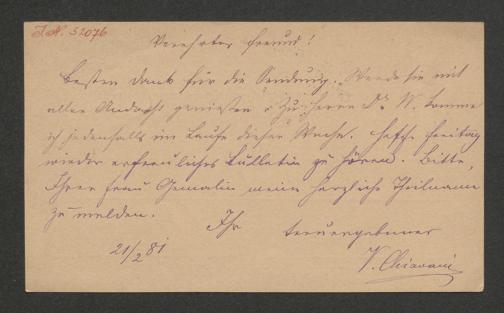 J.N. 52076
Verehrter Freund!
Besten Dank für die Sendung. Werde sie mit
aller Andacht genießen. Zu Herrn Dr. W. komme
ich jedenfalls im Laufe dieser Woche. Hoffe Freitag
wieder erfreuliches Bulletin zu hören. Bitte,
Ihrer Frau Gemalin meine herzliche Theilname
zu melden.
Ihr treuergebener
21/2 81
V. Chiavacci